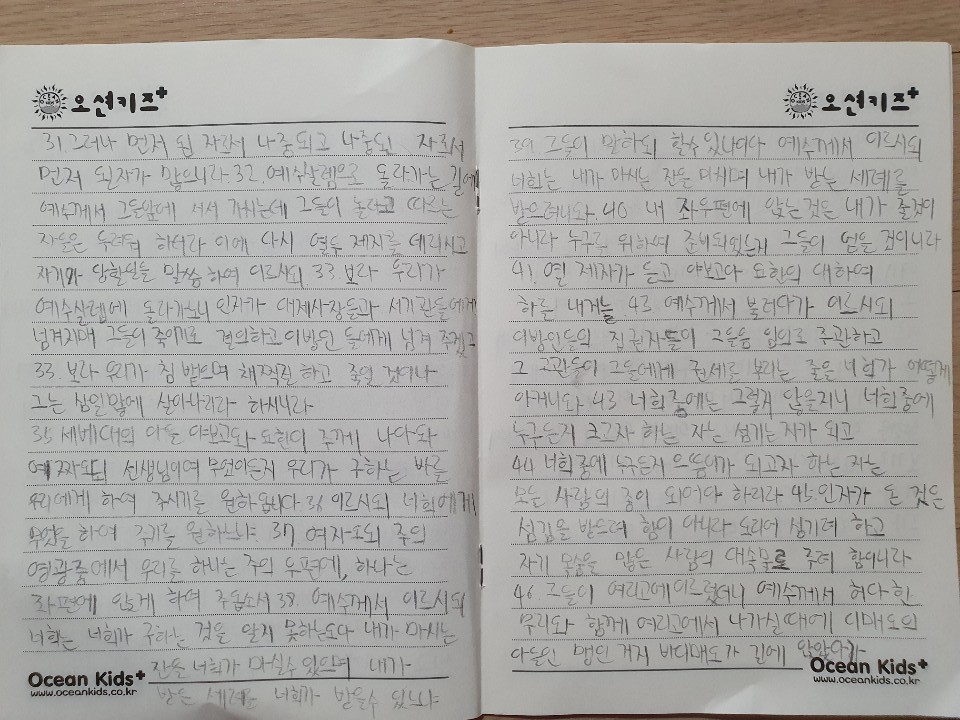 오션키즈+
31 그러나 먼저 된 자로서 나중되고 나중된 자로서
먼저 된자가 많으니라 32. 예수살렘으로 올라가는 길에
예수께서 그들앞에 서서 가시는데 그들이 놀라고 따르는
자들은 두려워 하더라 이에 다시 열두 제자를 데리시고
자기가 당할일을 말씀 하여 이르시되 33. 보라 우리가
예수살렘에 올라가노니 인자가 대제사장들과 서기관들에게
넘겨지매 그들이 죽이기로 결의하고 이방인 들에게 넘겨 주겠고
33. 보라 우리가 침 뱉으며 채찍질 하고 죽일 것이나
그는 삼일만에 살아나리라 하시니라
35 세베대의 아들 야보고와 요한이 주께 나아와
여짜오되 선생님이여 무엇이든지 우리가 구하는 바를
우리에게 하여 주시기를 원하옵니다 36 이르시되 너희에게
무엇을 하여 주기를 원하느냐 37 여자오되 주의
영광중에서 우리를 하나는 주의 우편에, 하나는
좌편에 앉게 하여 주옵소서 38. 예수께서 이르시되
너희는 너희가 구하는 것을 알지 못하는도다 내가 마시는
잔을 너희가 마실수 있으며 내가
받는 세례를 너희가 받을수 있느냐
Ocean Kids+
www.oceankids.co.kr
오션키즈+
39 그들이 말하되 할수 있나이다 예수께서 이르시되
너희는 내가 마시는 잔을 마시며 내가 받는 세례를
받으려니와 40 내 좌우편에 앉는것은 내가 줄것이
아니라 누구를 위하여 준비되었는지 그들이 얻을 것이니라
41. 열 제자가 듣고 야보고와 요한의 대하여
하를 내거늘 43 예수께서 불러다가 이르시되
이방인들의 집권자들이 그들을 임의로 주관하고
그 고관들이 그들에게 권세를 부리는 줄은 너희가
아거니와 43 너희중에는 그렇지 않을지니 너희중에
누구든지 크고자 하는 자는 섬기는 자가 되고
44 너희중에 누구든지 으뜸이가 되고자 하는 자는
모든 사람의 종이 되어야 하리라 45. 인자가 온 것은
섬김을 받으려 함이 아니라 도리어 섬기려 하고
자기 목숨을 많은 사람의 대속물로 주려 함이니라
46 그들이 여리고에 이르렀더니 예수께서 허다한
무리와 함께 여리고에서 나가실 때에 디매오의
아들인 맹인 거지 바디매오가 길에 앉았다가
Ocean Kids+
www.oceankids.co.kr